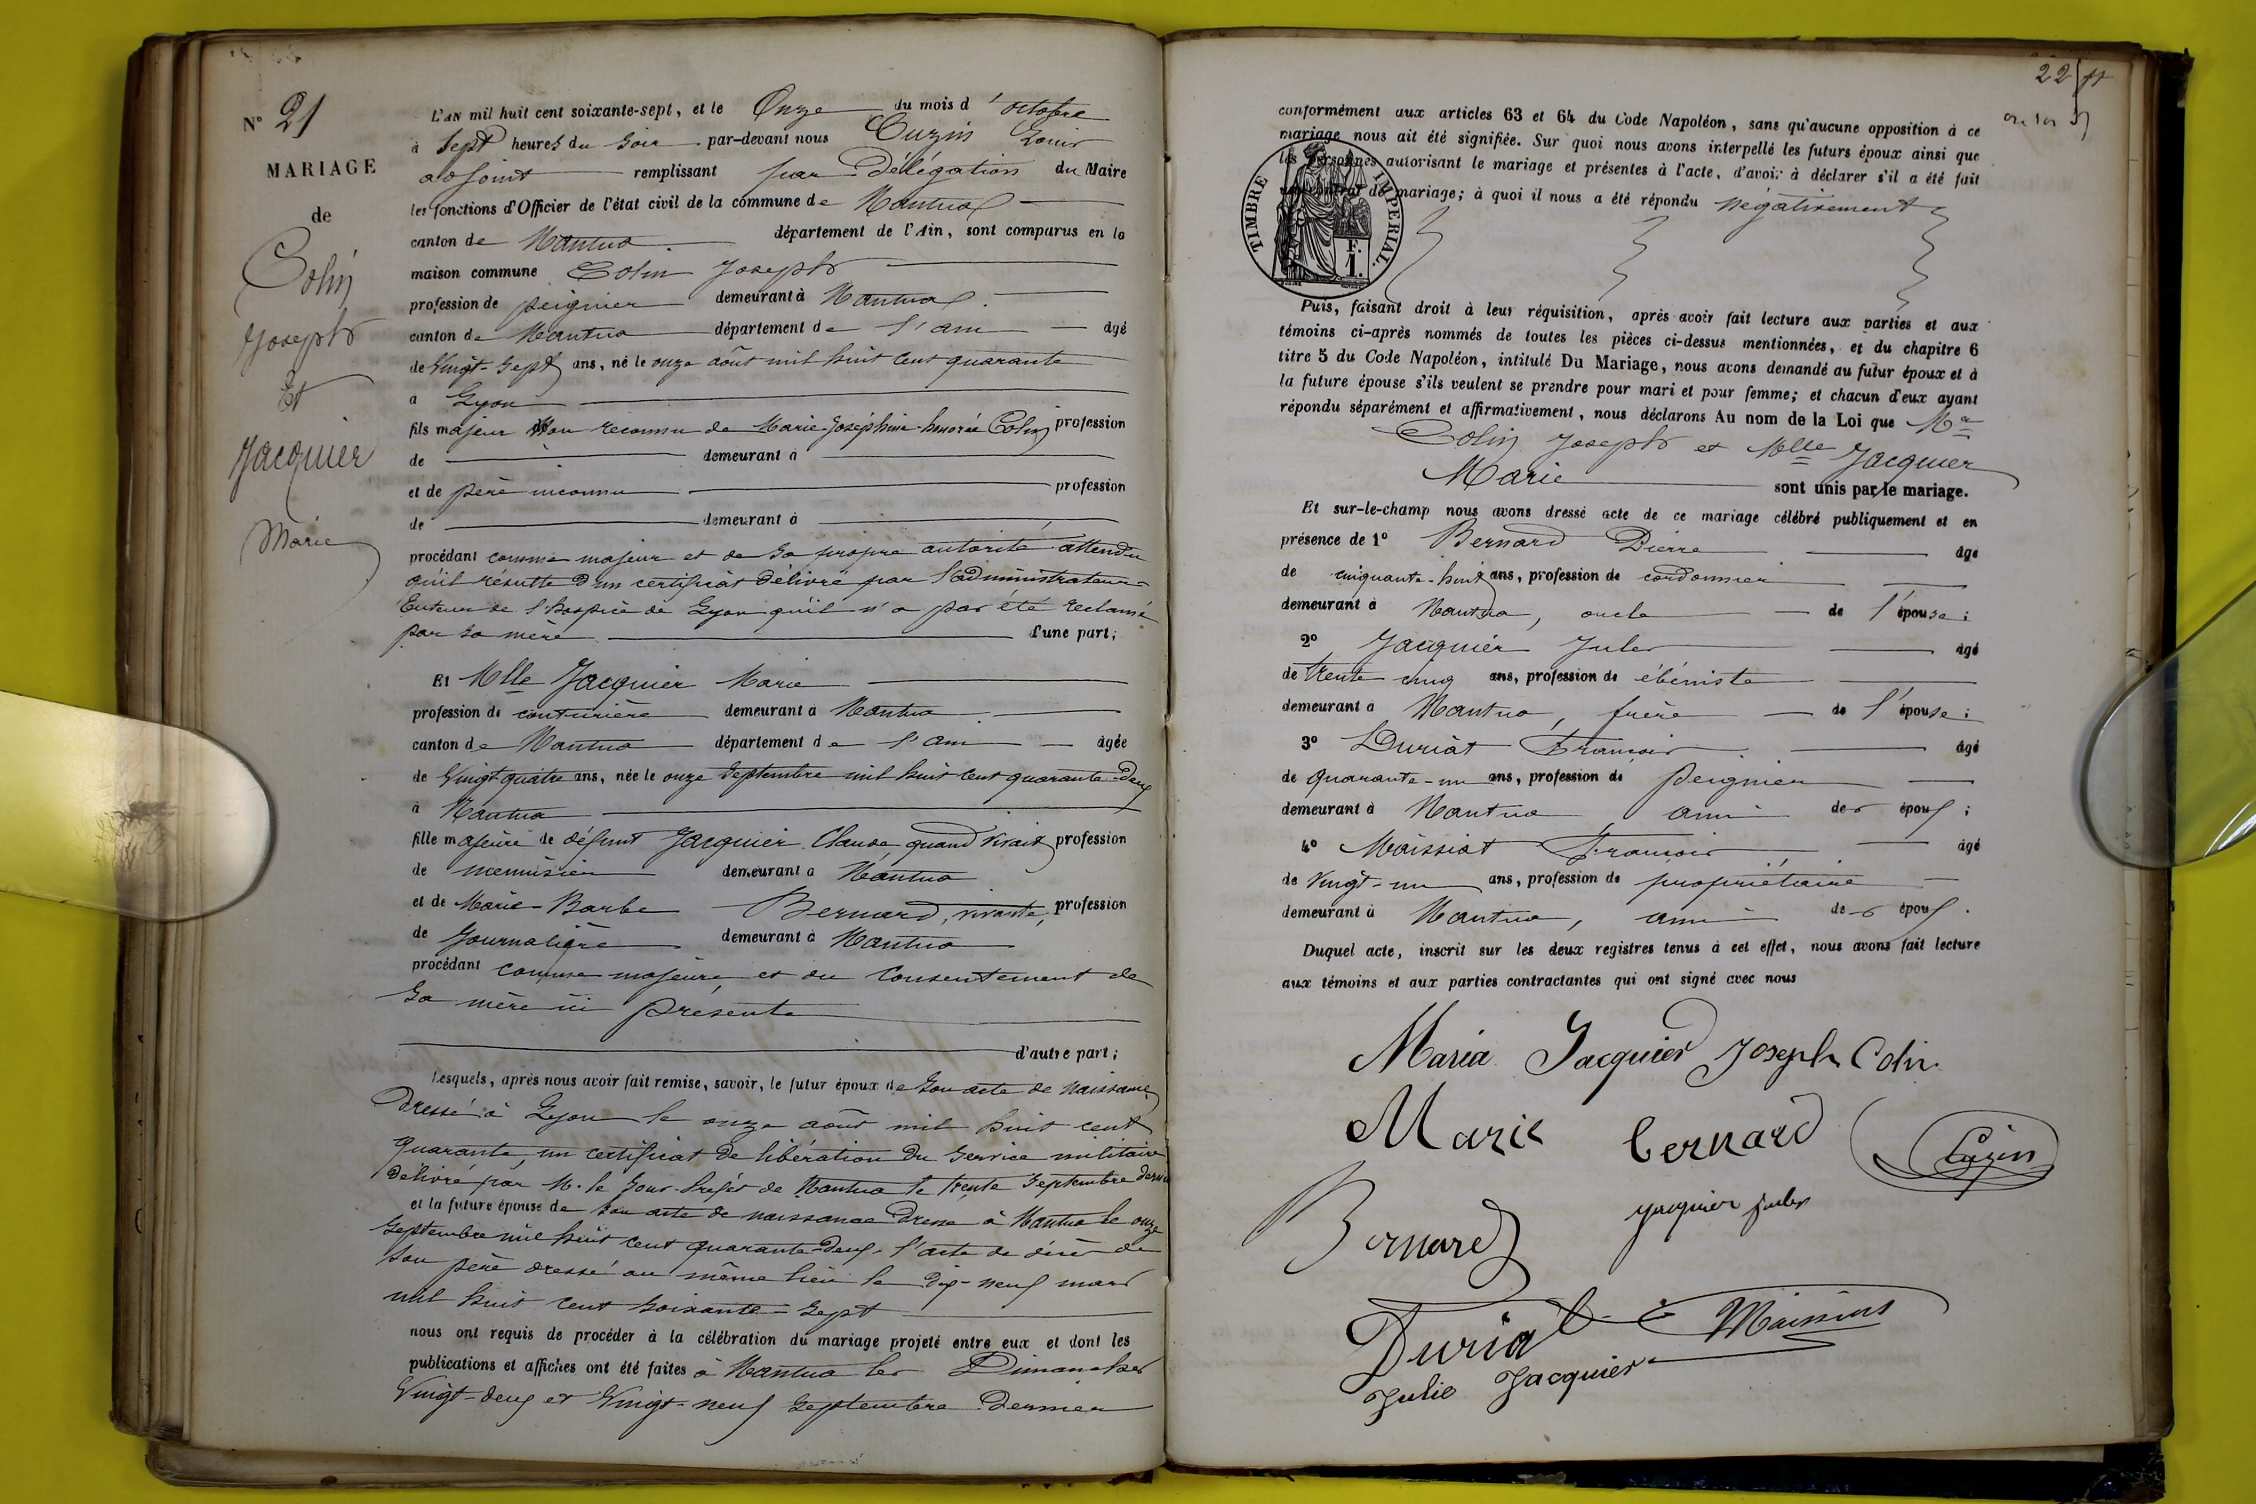 N° 21
MARIAGE
de
Colin
Joseph
Et
Jacquier
Marie
L'AN mil huit cent soixante-sept, et le Onze du mois d'octobre
à sept heures du soir par-devant nous Cuzin Louis
adjoint remplissant par Délégation du Maire
les fonctions d'Officier de l'état civil de la commune de Nantua
canton de Nantua département de l'Ain, sont comparus en la
maison commune Colin Joseph
profession de peignier demeurant à Nantua
canton de Nantua département de l'ain âgé
de vingt-sept ans, né le onze août mil huit cent quarante
à Lyon
fils majeur non reconnu de Marie-Joséphine-honorée Colin profession
de demeurant à
et de père inconnu profession
de demeurant à
procédant comme majeur et de sa propre autorité attendu
qu'il résulte d'un certificat délivré par l'administrateur-
Tuteur de l'hospice de Lyon qu'il n'a pas été réclamé
par sa mère d'une part;
Et Mlle Jacquier Marie
profession de couturière demeurant à Nantua
canton de Nantua département de l'ain âgée
de vingt quatre ans, née le onze septembre mil huit cent quarante-deux
à Nantua
fille majeure de défunt Jacquier Claude quand vivait profession
de menuisier demeurant à Nantua
et de Marie-Barbe Bernard, vivante, profession
de journalière demeurant à Nantua
procédant comme majeure, et du consentement de
sa mère ici présente
d'autre part;
Lesquels, après nous avoir fait remise, savoir, le futur époux de son acte de naissance
dressé à Lyon le onze août mil huit cent
quarante, un certificat de libération du service militaire
délivré par M. le Sous-Préfet de Nantua le trente septembre dernier
et la future épouse de son acte de naissance dressé à Nantua le onze
septembre mil huit cent quarante-deux, l'acte de décès de
son père dressé au même lieu le dix-neuf mars
mil huit cent soixante-sept
nous ont requis de procéder à la célébration du mariage projeté entre eux et dont les
publications et affiches ont été faites à Nantua les Dimanches
vingt-deux et vingt-neuf septembre dernier
22
conformément aux articles 63 et 64 du Code Napoléon, sans qu'aucune opposition à ce
mariage nous ait été signifiée. Sur quoi nous avons interpellé les futurs époux ainsi que
les personnes autorisant le mariage et présentes à l'acte, d'avoir à déclarer s'il a été fait
un contrat de mariage; à quoi il nous a été répondu négativement
TIMBRE IMPERIAL
1 F.
Puis, faisant droit à leur réquisition, après avoir fait lecture aux parties et aux
témoins ci-après nommés de toutes les pièces ci-dessus mentionnées, et du chapitre 6
titre 5 du Code Napoléon, intitulé Du Mariage, nous avons demandé au futur époux et à
la future épouse s'ils veulent se prendre pour mari et pour femme; et chacun d'eux ayant
répondu séparément et affirmativement, nous déclarons Au nom de la Loi que Mr
Colin Joseph et Mlle Jacquier
Marie sont unis par le mariage.
Et sur-le-champ nous avons dressé acte de ce mariage célébré publiquement et en
présence de 1° Bernard Pierre âgé
de cinquante-huit ans, profession de cordonnier
demeurant à Nantua, oncle de l'épouse;
2° Jacquier Jules âgé
de trente cinq ans, profession de ébéniste
demeurant à Nantua, frère de l'épouse;
3° Duriat François âgé
de quarante-un ans, profession de peignier
demeurant à Nantua ami des époux;
4° Maissiat François âgé
de vingt-un ans, profession de propriétaire
demeurant à Nantua, ami des époux.
Duquel acte, inscrit sur les deux registres tenus à cet effet, nous avons fait lecture
aux témoins et aux parties contractantes qui ont signé avec nous
Maria Jacquier Joseph Colin
Marie Bernard Cuzin
Bernard Jacquier Jules
Duriat Maissiat
Julie Jacquier